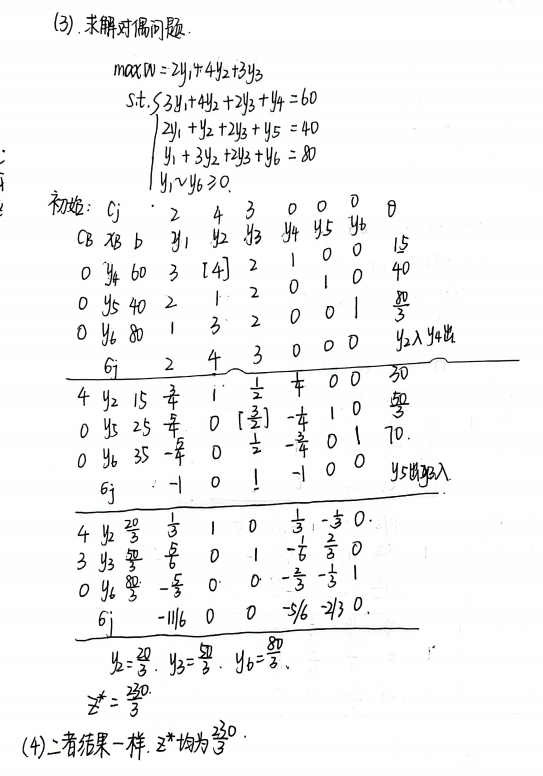 (3). 求解对偶问题.
max W = 2y₁+4y₂+3y₃
s.t. { 3y₁+4y₂+2y₃+y₄ = 60
2y₁ + y₂ + 2y₃ + y₅ = 40
y₁ + 3y₂ + 2y₃ + y₆ = 80
y₁~y₆ ≥ 0.
初始: Cj 2 4 3 0 0 0 θ
CB XB b y₁ y₂ y₃ y₄ y₅ y₆
0 y₄ 60 3 [4] 2 1 0 0 15
0 y₅ 40 2 1 2 0 1 0 40
0 y₆ 80 1 3 2 0 0 1 80/3
σj 2 4 3 0 0 0 y₂入 y₄出
4 y₂ 15 3/4 1 1/2 1/4 0 0 30
0 y₅ 25 5/4 0 [3/2] -1/4 1 0 50/3
0 y₆ 35 -5/4 0 1/2 -3/4 0 1 70.
σj -1 0 1 -1 0 0 y₅出y₃入
4 y₂ 20/3 1/3 1 0 1/3 -1/3 0.
3 y₃ 50/3 5/6 0 1 -1/6 2/3 0
0 y₆ 80/3 -5/3 0 0 -2/3 -1/3 1
σj -11/6 0 0 -5/6 -2/3 0.
y₂=20/3. y₃=50/3. y₆=80/3.
z* = 230/3.
(4) 二者结果一样. z*均为230/3.